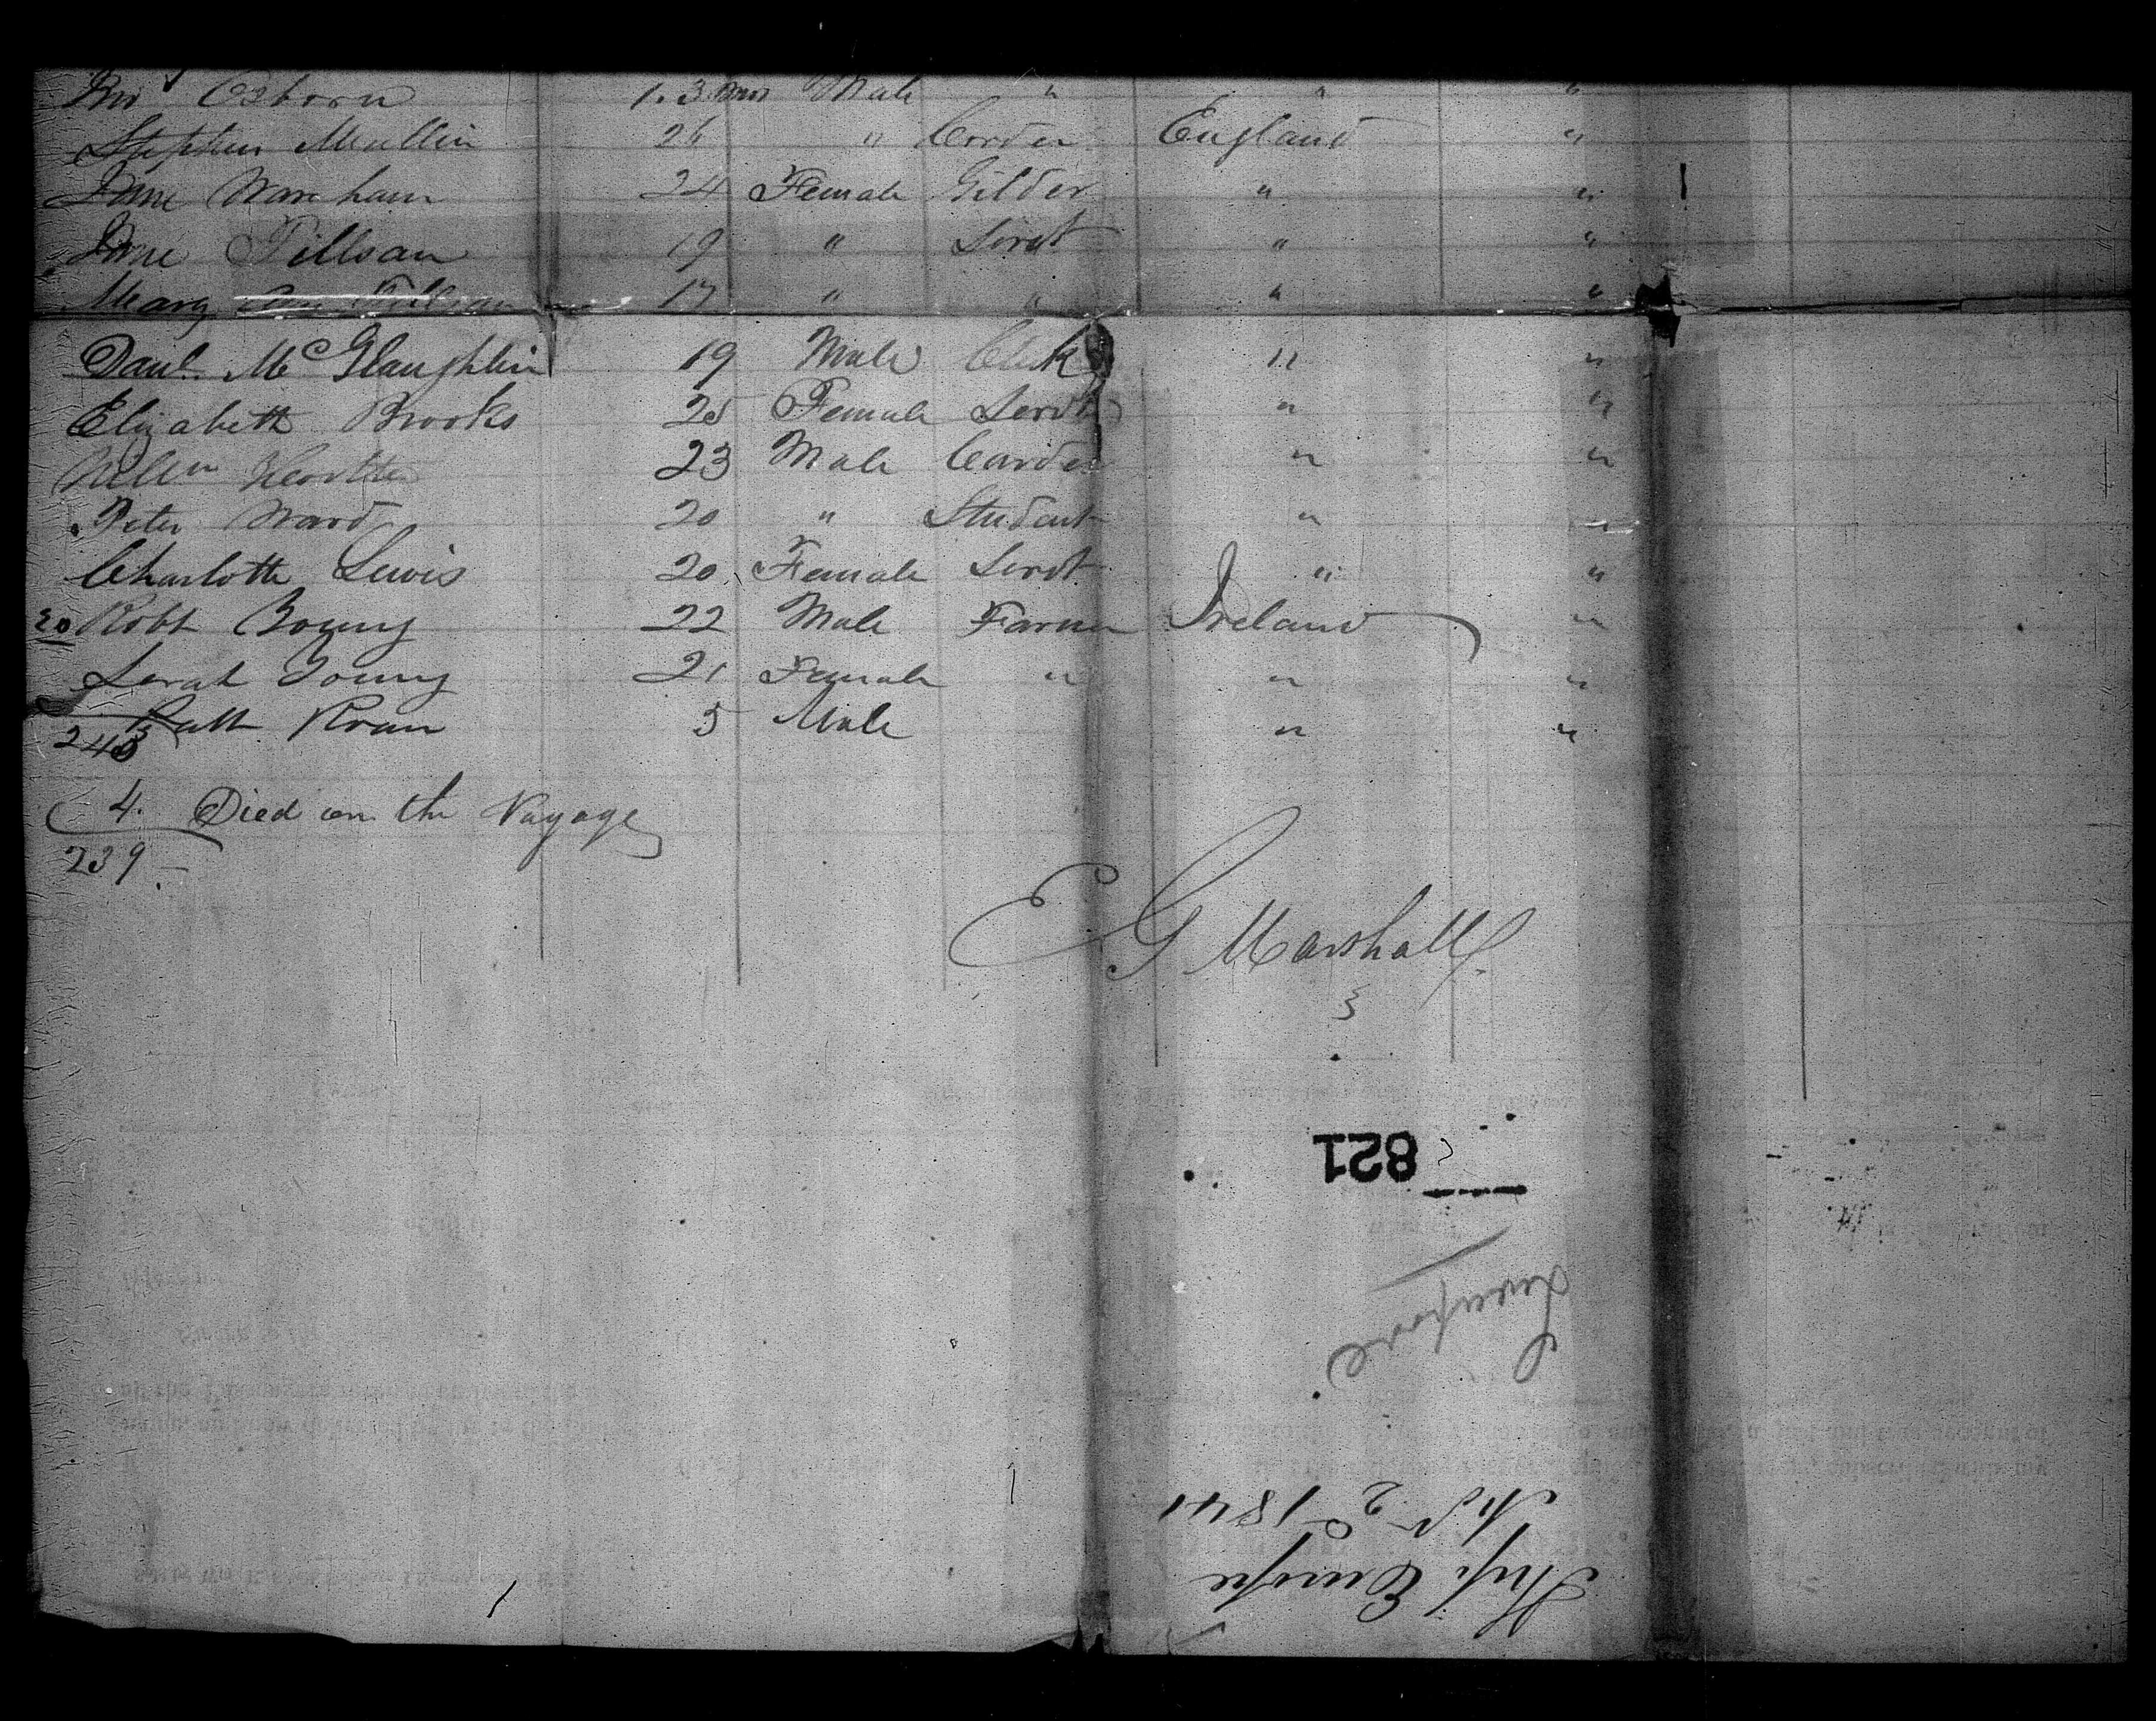 Osborn 1.3 Mos Male " " "
Stephen Mullin 26 " Corder England "
Jane Warcham 24 Female Gilder " "
Jane Tillsan 19 " Servt " "
Mary Ann Tillsan 17 " " " "
Danl McGlaughlin 19 Male Clerk " "
Elizabeth Brooks 25 Female Servt " "
23 Male Carder " "
Peter Ward 20 " Student " "
Charlotte Lewis 20 Female Servt " "
20 Robt Young 22 Male Farmer Ireland "
Sarah Young 21 Female " " "
Patt Kvan 5 Male " "
243
4. Died on the Voyage
239
E G Marshall
821
Liverpool
Ship Europe
2 1841